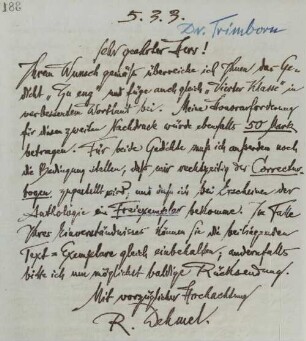 188
5. 3. 3.
Dr. Trimborn
Sehr geehrter Herr!
Ihrem Wunsch gemäß überreiche ich Ihnen das Ge-
dicht „Zu eng" und füge auch gleich „Vierter Klasse" in
verbessertem Wortlaut bei. Meine Honorarforderung
für diesen zweiten Nachdruck würde ebenfalls 50 Mark
betragen. Für beide Gedichte muß ich außerdem noch
die Bedingung stellen, daß mir rechtzeitig der Correctur-
bogen zugestellt wird und daß ich bei Erscheinen der
Anthologie ein Freiexemplar bekomme. Im Falle
Ihres Einverständnisses können Sie die beiliegenden
Text=Exemplare gleich einbehalten; andernfalls
bitte ich um möglichst baldige Rücksendung.
Mit vorzüglicher Hochachtung
R. Dehmel.